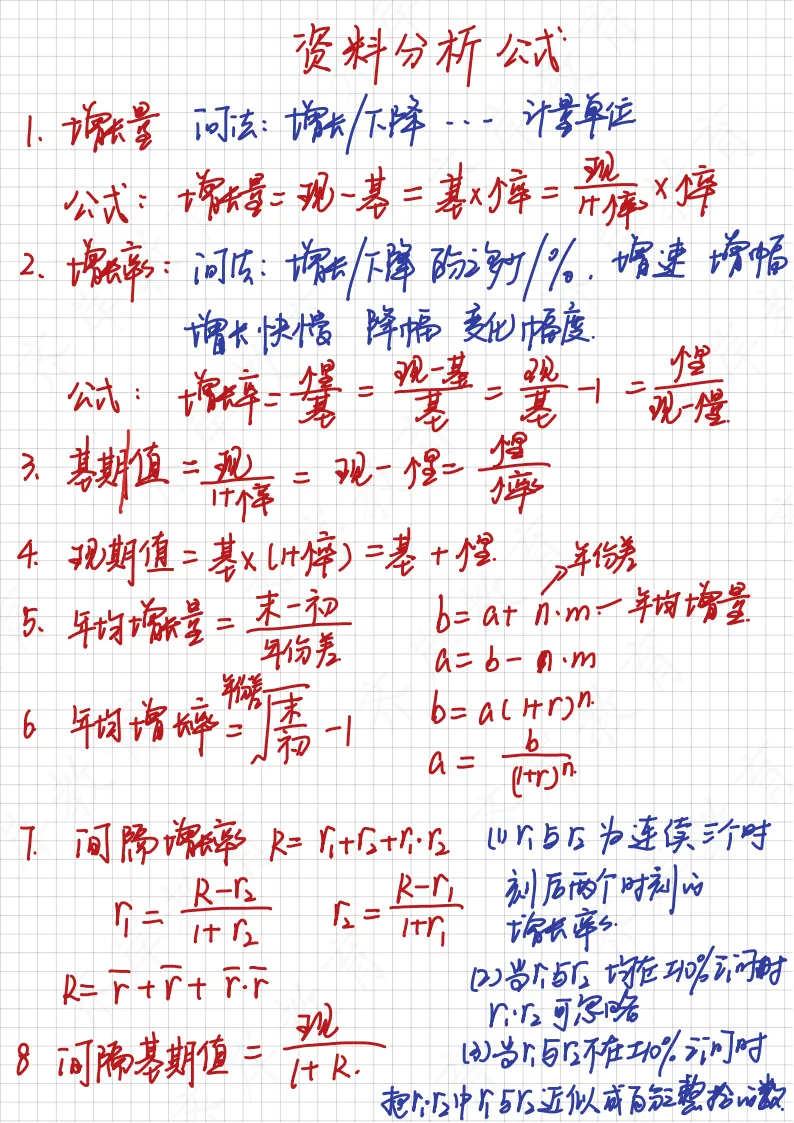 资料分析公式
1. 增长量 问法: 增长/下降 ... 计量单位
公式: 增长量=现-基=基×增率=现/(1+增率)×增率
2. 增长率: 问法: 增长/下降 百分之多少/%. 增速 增幅
增长快慢 降幅 变化幅度.
公式: 增长率=增量/基=(现-基)/基=现/基-1=增量/(现-增量)
3. 基期值=现/(1+增率)=现-增量=增量/增率
4. 现期值=基×(1+增率)=基+增量
年份差
5. 年均增长量=(末-初)/年份差 b=a+n·m-年均增量
a=b-n·m
6 年均增长率=年份差√(末/初)-1 b=a(1+r)^n
a=b/(1+r)^n
7. 间隔增长率 R=r₁+r₂+r₁·r₂ (1) r₁与r₂为连续三个时
刻后两个时刻的
r₁=(R-r₂)/(1+r₂) r₂=(R-r₁)/(1+r₁) 增长率.
(2)当r₁与r₂均在±10%之间时
R=r̅+r̅+r̅·r̅ r₁·r₂可忽略
8 间隔基期值=现/(1+R) (3)当r₁与r₂不在±10%之间时
把r₁·r₂中r₁与r₂近似成百分之整拾的数